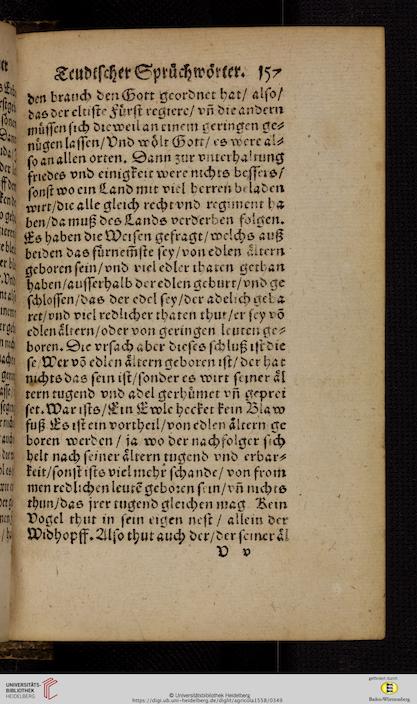 Teudtscher Sprüchwörter. 157
den brauch den Gott geordnet hat/ also/
das der eltiste Fürst regiere/ vñ die andern
müssen sich dieweil an einem geringen ge⸗
nügen lassen/ Vnd wölt Gott/ es were al⸗
so an allen orten. Dann zur vnterhaltung
friedes vnd einigkeit were nichts bessers/
sonst wo ein Land mit viel herren beladen
wirt/die alle gleich recht vnd regiment ha
ben/da muß des Lands verderben folgen.
Es haben die Weisen gefragt/welchs auß
beiden das fürnem̃ste sey/von edlen ältern
geboren sein/vnd viel edler thaten gethan
haben/ausserhalb der edlen geburt/vnd ge
schlossen/das der edel sey/der adelich geba
ret/vnd viel redlicher thaten thut/er sey võ
edlen ältern/oder von geringen leuten ge⸗
boren. Die vrsach aber dieses schluß ist die
se/Wer võ edlen ältern geboren ist/der hat
nichts das sein ist/sonder es wirt seiner äl
tern tugend vnd adel gerhümet vñ geprei
set. War ists/Ein Ewle hecket kein Blaw
fuß Es ist ein vortheil/von edlen ältern ge
boren werden/ ja wo der nachfolger sich
helt nach seiner ältern tugend vnd erbar⸗
keit/sonst ists viel mehr schande/von from
men redlichen leutẽ geboren sein/vñ nichts
thun/das jrer tugend gleichen mag Kein
Vogel thut in sein eigen nest/ allein der
Widhopff. Also thut auch der/der seiner äl
V v
UNIVERSITÄTS-
BIBLIOTHEK
HEIDELBERG
© Universitätsbibliothek Heidelberg
https://digi.ub.uni-heidelberg.de/diglit/agricola1558/0349
gefördert durch
Baden-Württemberg